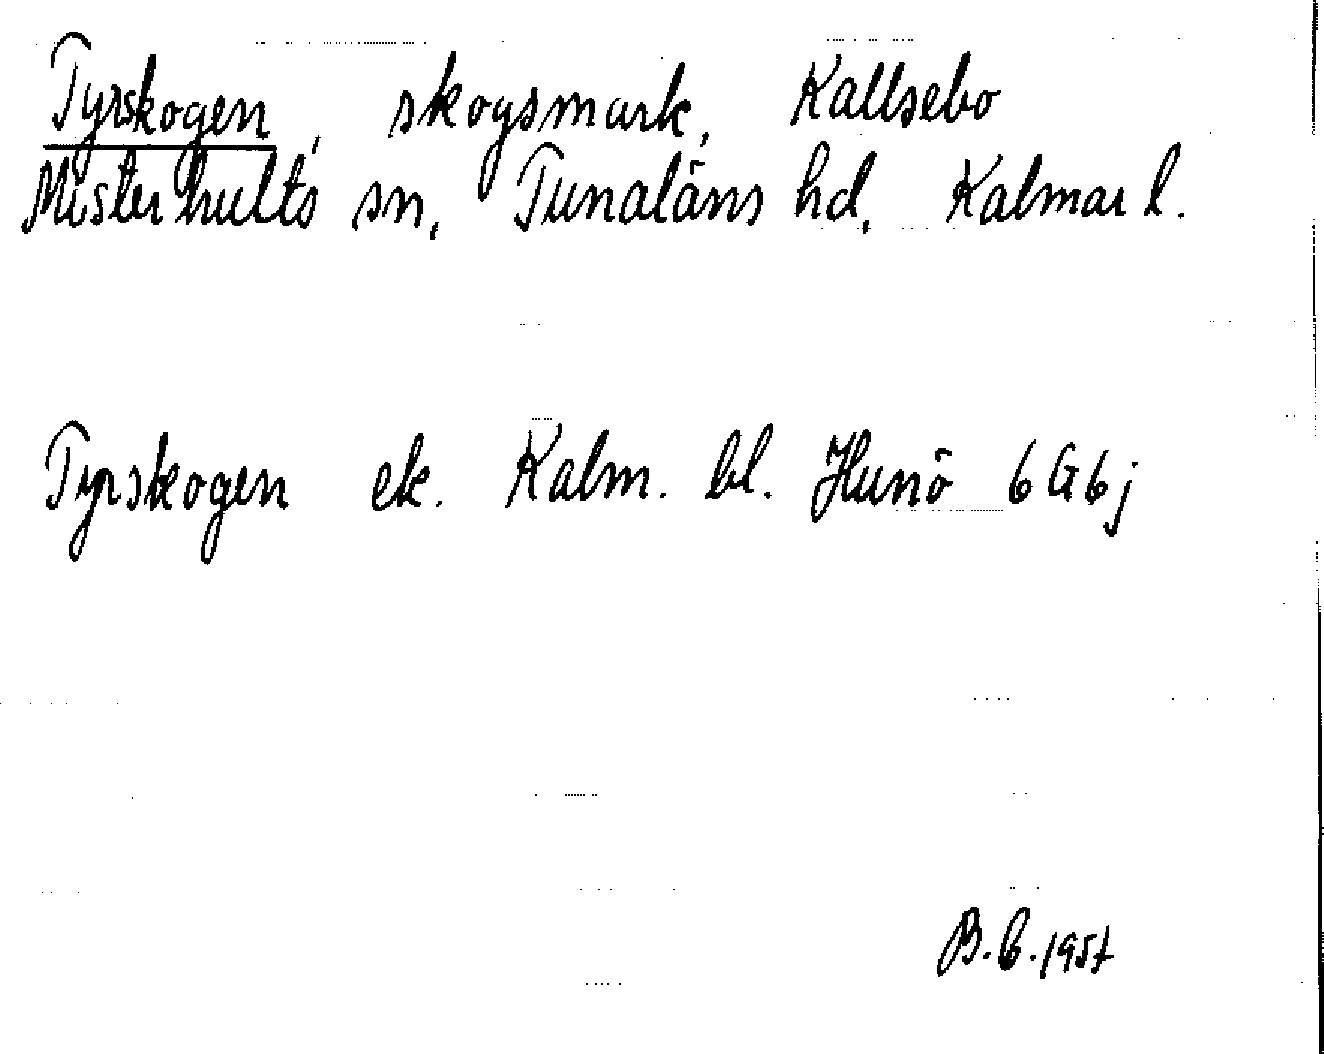 Tyrskogen, skogsmark, Kallsebo
Misterhults sn, Tunaläns hd, Kalmar l.
Tyrskogen ek. Kalm. bl. Hunö 6G6j
B.C. 1957